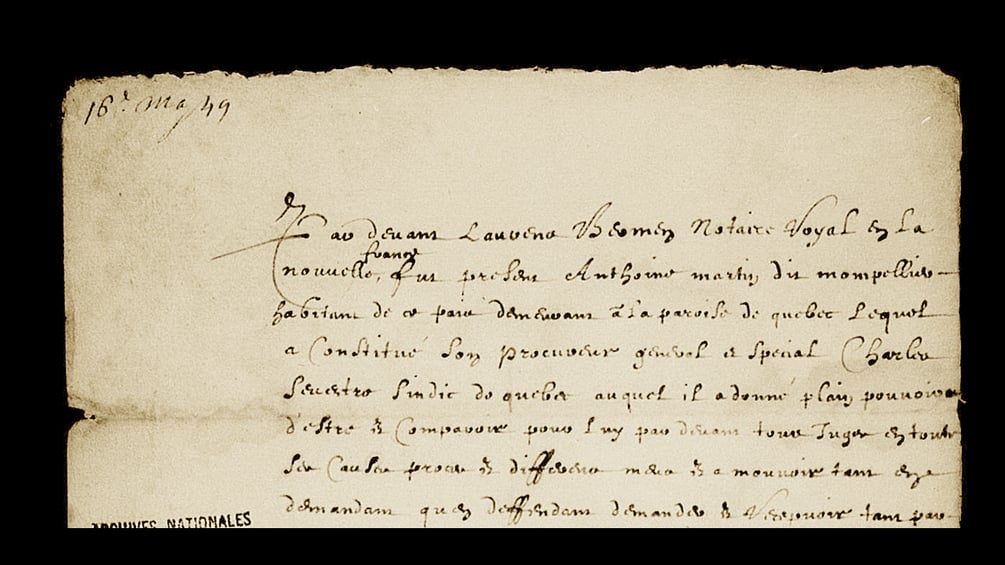 16.e May 49
Par devant Laurens Bermen Notaire Royal en la
france
nouvelle, fut present Anthoine martin dit mompellier
habitant de ce pais demeurant a la paroise de quebec lequel
a Constitué son procureur general et special Charles
Sevestre sindic de quebec auquel il a donné plain pouvoir
d'estre & Comparoir pour luy par devant tous Juges en toutes
ses Causes proces & differens meus & a mouvoir tant en
demandant qu'en deffendant demander & Recepvoir tant par
ARCHIVES NATIONALES